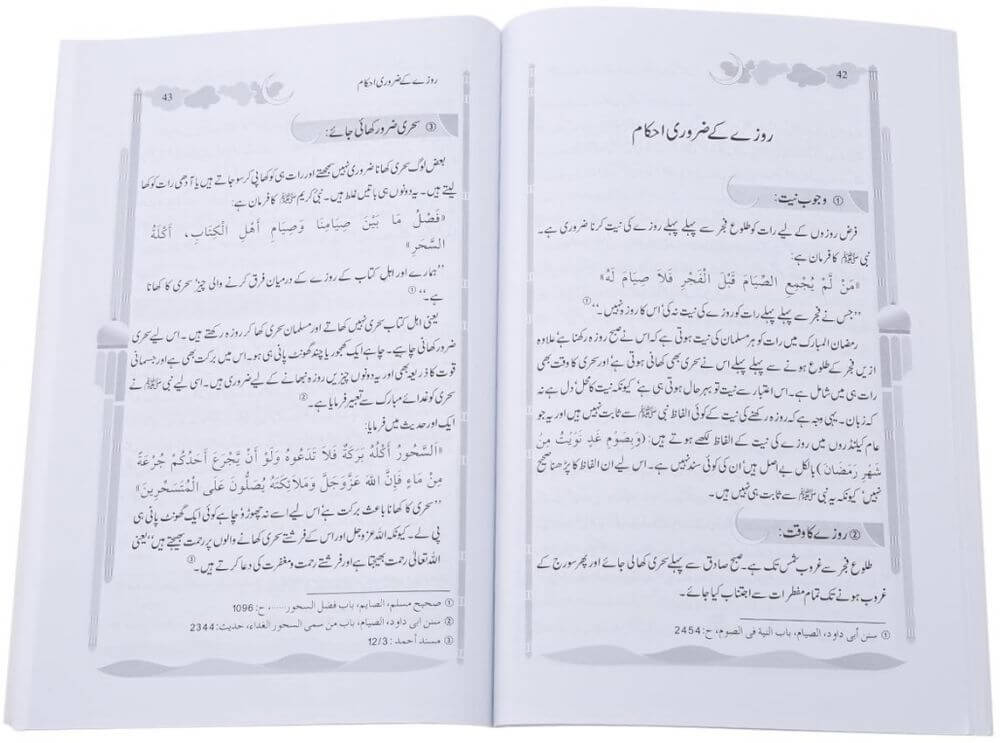 42
روزے کے ضروری احکام
① وجوب نیت:
فرض روزوں کے لیے رات کو طلوع فجر سے پہلے پہلے روزے کی نیت کرنا ضروری ہے۔
نبی ﷺ کا فرمان ہے:
«مَنْ لَّمْ يُجْمِعِ الصِّيَامَ قَبْلَ الْفَجْرِ فَلَا صِيَامَ لَهُ»
’’جس نے فجر سے پہلے پہلے رات کو روزے کی نیت نہ کی‘ اس کا روزہ نہیں۔‘‘①
رمضان المبارک میں رات کو ہر مسلمان کی نیت ہوتی ہے کہ اس نے صبح روزہ رکھنا ہے‘ علاوہ
ازیں فجر کے طلوع ہونے سے پہلے پہلے اس نے سحری بھی کھانی ہوتی ہے‘ اور سحری کا وقت بھی
رات ہی میں شامل ہے۔ اس اعتبار سے نیت تو بہر حال ہوتی ہی ہے‘ کیونکہ نیت کا محل‘ دل ہے نہ
کہ زبان۔ یہی وجہ ہے کہ روزہ رکھنے کی نیت کے کوئی الفاظ نبی ﷺ سے ثابت نہیں ہیں اور یہ جو
عام کیلنڈروں میں روزے کی نیت کے الفاظ لکھے ہوتے ہیں: (وَبِصَوْمِ غَدٍ نَوَيْتُ مِنْ
شَهْرِ رَمَضَانَ) بالکل بے اصل ہیں‘ ان کی کوئی سند نہیں ہے۔ اس لیے ان الفاظ کا پڑھنا صحیح
نہیں‘ کیونکہ یہ نبی ﷺ سے ثابت ہی نہیں ہیں۔
② روزے کا وقت:
طلوع فجر سے غروب شمس تک ہے۔ صبح صادق سے پہلے سحری کھالی جائے اور پھر سورج کے
غروب ہونے تک تمام مفطرات سے اجتناب کیا جائے۔
① سنن أبى داود، الصيام، باب النية فى الصوم، ح: 2454
روزے کے ضروری احکام
43
③ سحری ضرور کھائی جائے:
بعض لوگ سحری کھانا ضروری نہیں سمجھتے اور رات ہی کو کھا پی کر سو جاتے ہیں یا آدھی رات کو کھا
لیتے ہیں۔ یہ دونوں ہی باتیں غلط ہیں۔ نبیٔ کریم ﷺ کا فرمان ہے:
«فَصْلُ مَا بَيْنَ صِيَامِنَا وَصِيَامِ أَهْلِ الْكِتَابِ، أَكْلَةُ
السَّحَرِ»
’’ہمارے اور اہل کتاب کے روزے کے درمیان فرق کرنے والی چیز‘ سحری کا کھانا
ہے۔‘‘①
یعنی اہل کتاب سحری نہیں کھاتے اور مسلمان سحری کھا کر روزہ رکھتے ہیں۔ اس لیے سحری
ضرور کھانی چاہیے۔ چاہے ایک کھجور یا چند گھونٹ پانی ہی ہو۔ اس میں برکت بھی ہے اور جسمانی
قوت کا ذریعہ بھی اور یہ دونوں چیزیں روزہ نبھانے کے لیے ضروری ہیں۔ اسی لیے نبی ﷺ نے
سحری کو غدائے مبارک سے تعبیر فرمایا ہے۔②
ایک اور حدیث میں فرمایا:
«اَلسَّحُورُ أَكْلُهُ بَرَكَةٌ فَلَا تَدَعُوهُ وَلَوْ أَنْ يَّجْرَعَ أَحَدُكُمْ جُرْعَةً
مِنْ مَاءٍ فَإِنَّ اللهَ عَزَّوَجَلَّ وَمَلَائِكَتَهُ يُصَلُّونَ عَلَى الْمُتَسَحِّرِينَ»
’’سحری کا کھانا باعث برکت ہے‘ اس لیے اسے نہ چھوڑو‘ چاہے کوئی ایک گھونٹ پانی ہی
پی لے۔ کیونکہ اللہ عزوجل اور اس کے فرشتے سحری کھانے والوں پر رحمت بھیجتے ہیں‘‘ یعنی
اللہ تعالیٰ رحمت بھیجتا ہے اور فرشتے رحمت و مغفرت کی دعا کرتے ہیں۔③
① صحيح مسلم، الصيام، باب فضل السحور.....، ح: 1096
② سنن أبى داود، الصيام، باب من سمى السحور الغداء، حديث: 2344
③ مسند أحمد : 12/3